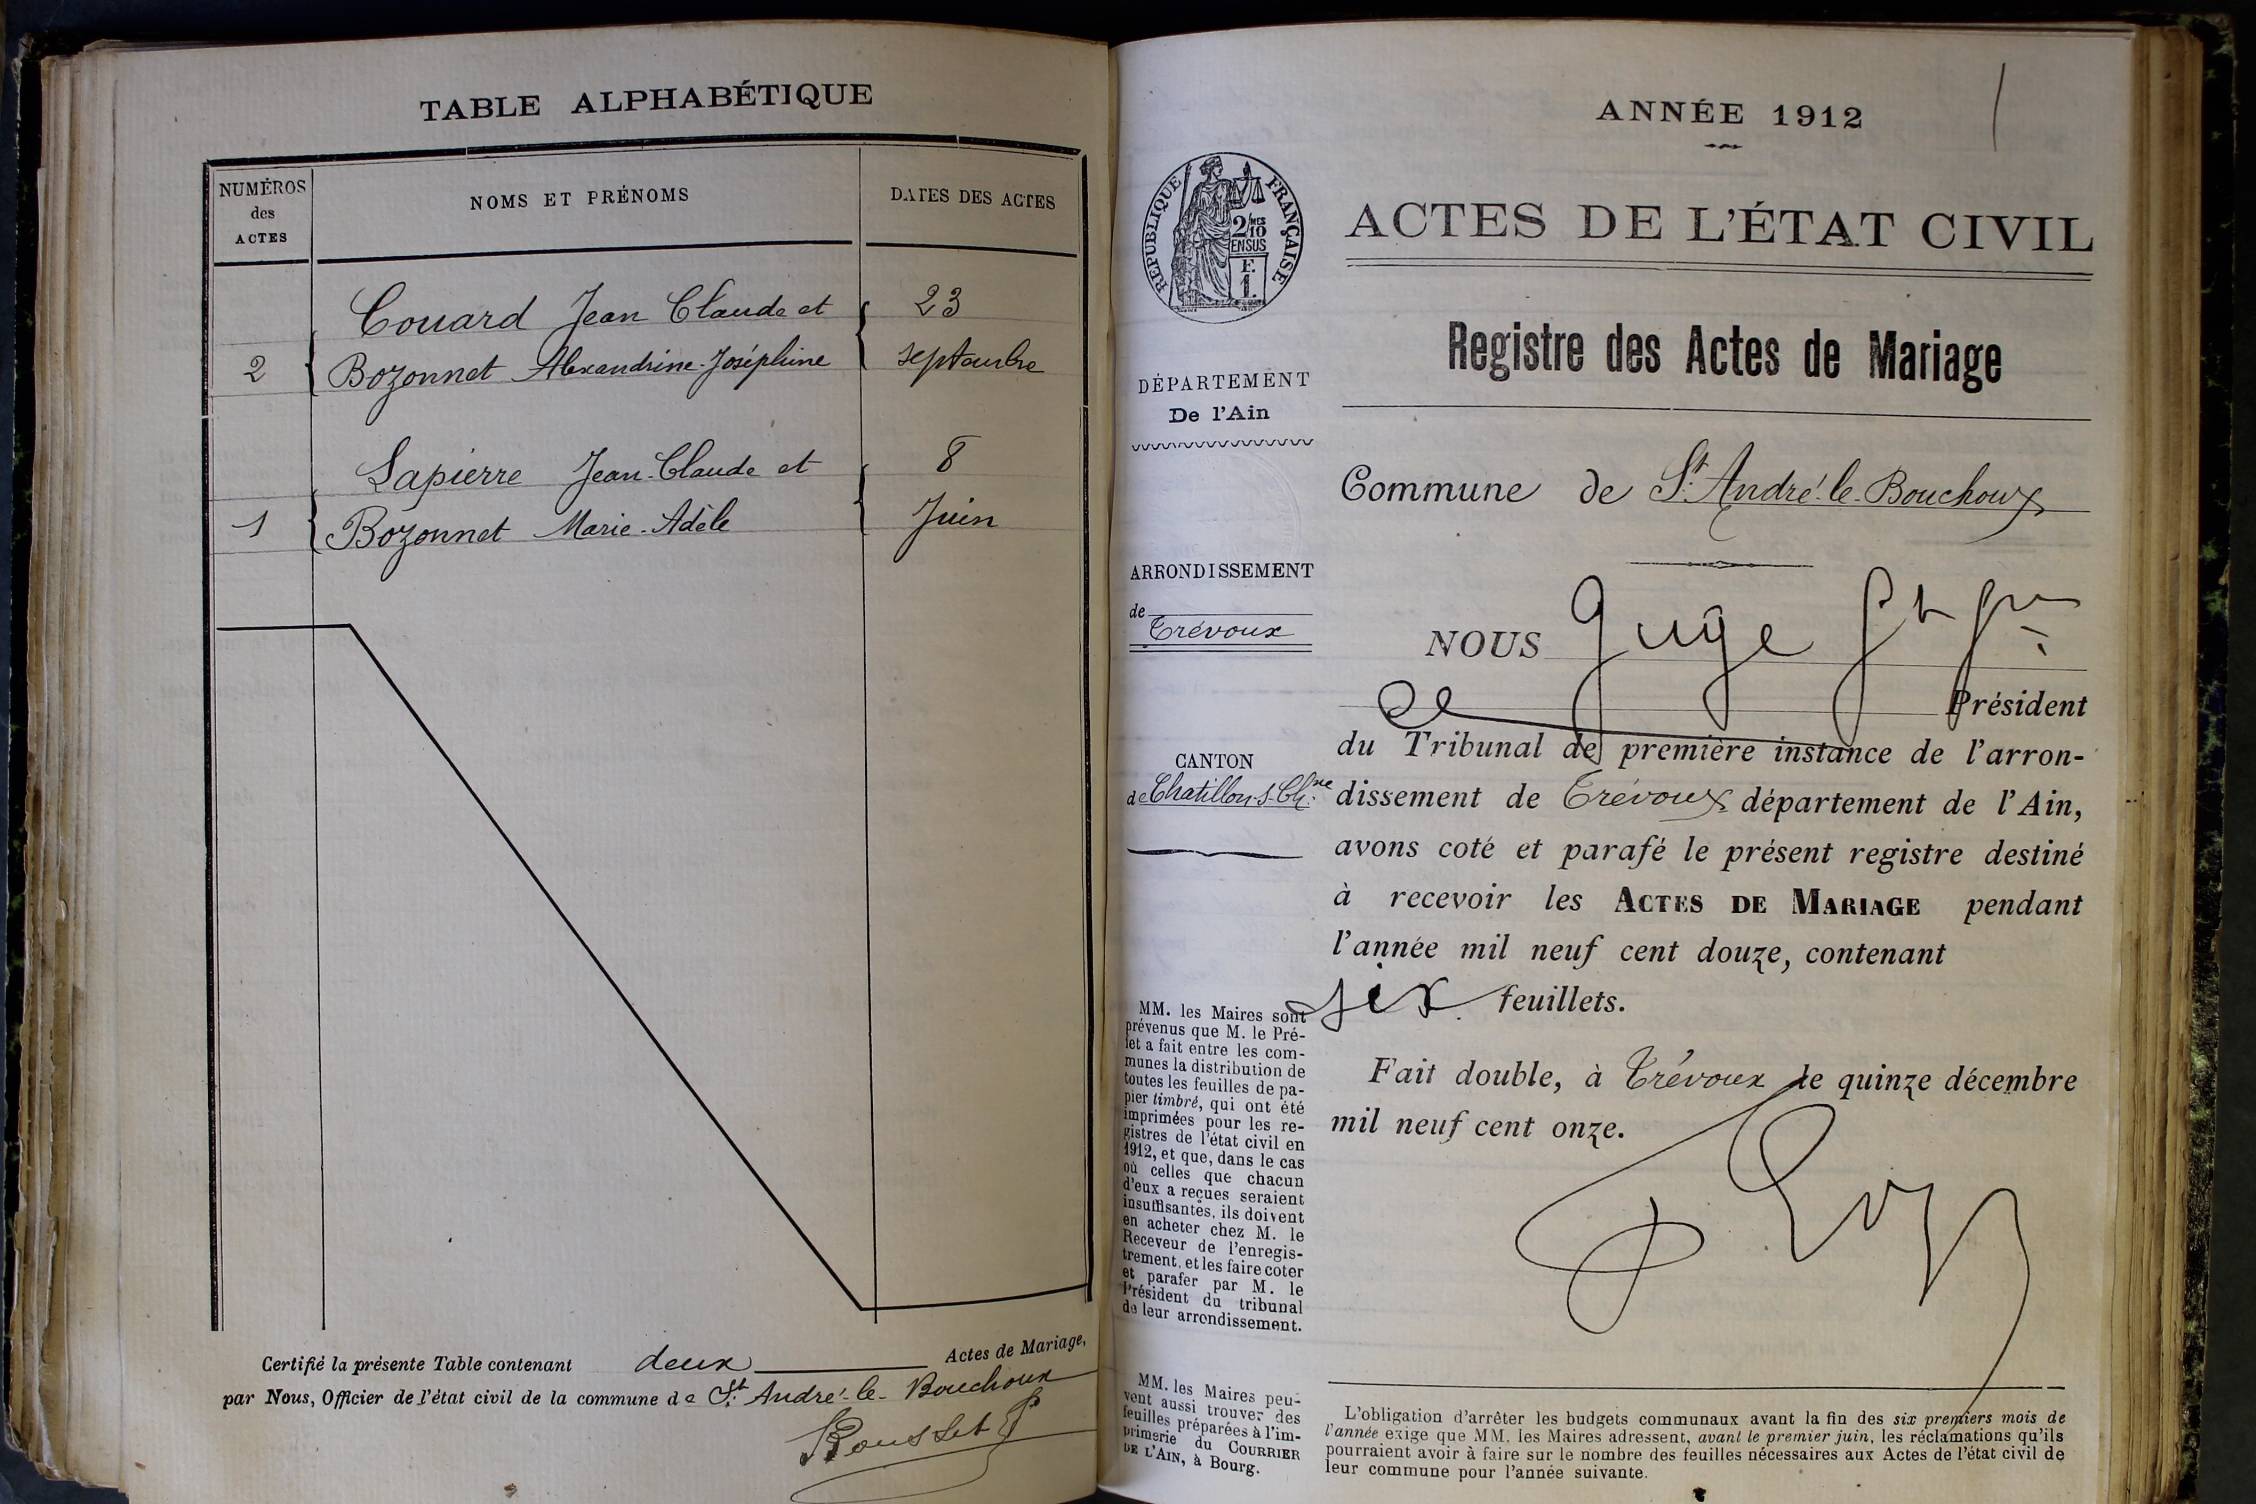 TABLE ALPHABÉTIQUE
NUMÉROS
des
ACTES
NOMS ET PRÉNOMS
DATES DES ACTES
Couard Jean Claude et
23
2
Bozonnet Alexandrine-Joséphine
septembre
Lapierre Jean-Claude et
8
1
Bozonnet Marie-Adèle
Juin
Certifié la présente Table contenant deux Actes de Mariage,
par Nous, Officier de l'état civil de la commune de St. André-le-Bouchoux
Rousset
ANNÉE 1912
1
RÉPUBLIQUE FRANÇAISE
2/MES
10
EN SUS
F.
1.
ACTES DE L'ÉTAT CIVIL
Registre des Actes de Mariage
DÉPARTEMENT
De l'Ain
Commune de St. André-le-Bouchoux
ARRONDISSEMENT
de
Trévoux
CANTON
de Chatillon-s-Ch.ne
NOUS Juge
Président
du Tribunal de première instance de l'arron-
dissement de Trévoux département de l'Ain,
avons coté et parafé le présent registre destiné
à recevoir les ACTES DE MARIAGE pendant
l'année mil neuf cent douze, contenant
six feuillets.
Fait double, à Trévoux le quinze décembre
mil neuf cent onze.
MM. les Maires sont
prévenus que M. le Pré-
fet a fait entre les com-
munes la distribution de
toutes les feuilles de pa-
pier timbré, qui ont été
imprimées pour les re-
gistres de l'état civil en
1912, et que, dans le cas
où celles que chacun
d'eux a reçues seraient
insuffisantes, ils doivent
en acheter chez M. le
Receveur de l'enregis-
trement, et les faire coter
et parafer par M. le
Président du tribunal
de leur arrondissement.
MM. les Maires peu-
vent aussi trouver des
feuilles préparées à l'im-
primerie du COURRIER
DE L'AIN, à Bourg.
L'obligation d'arrêter les budgets communaux avant la fin des six premiers mois de
l'année exige que MM. les Maires adressent, avant le premier juin, les réclamations qu'ils
pourraient avoir à faire sur le nombre des feuilles nécessaires aux Actes de l'état civil de
leur commune pour l'année suivante.